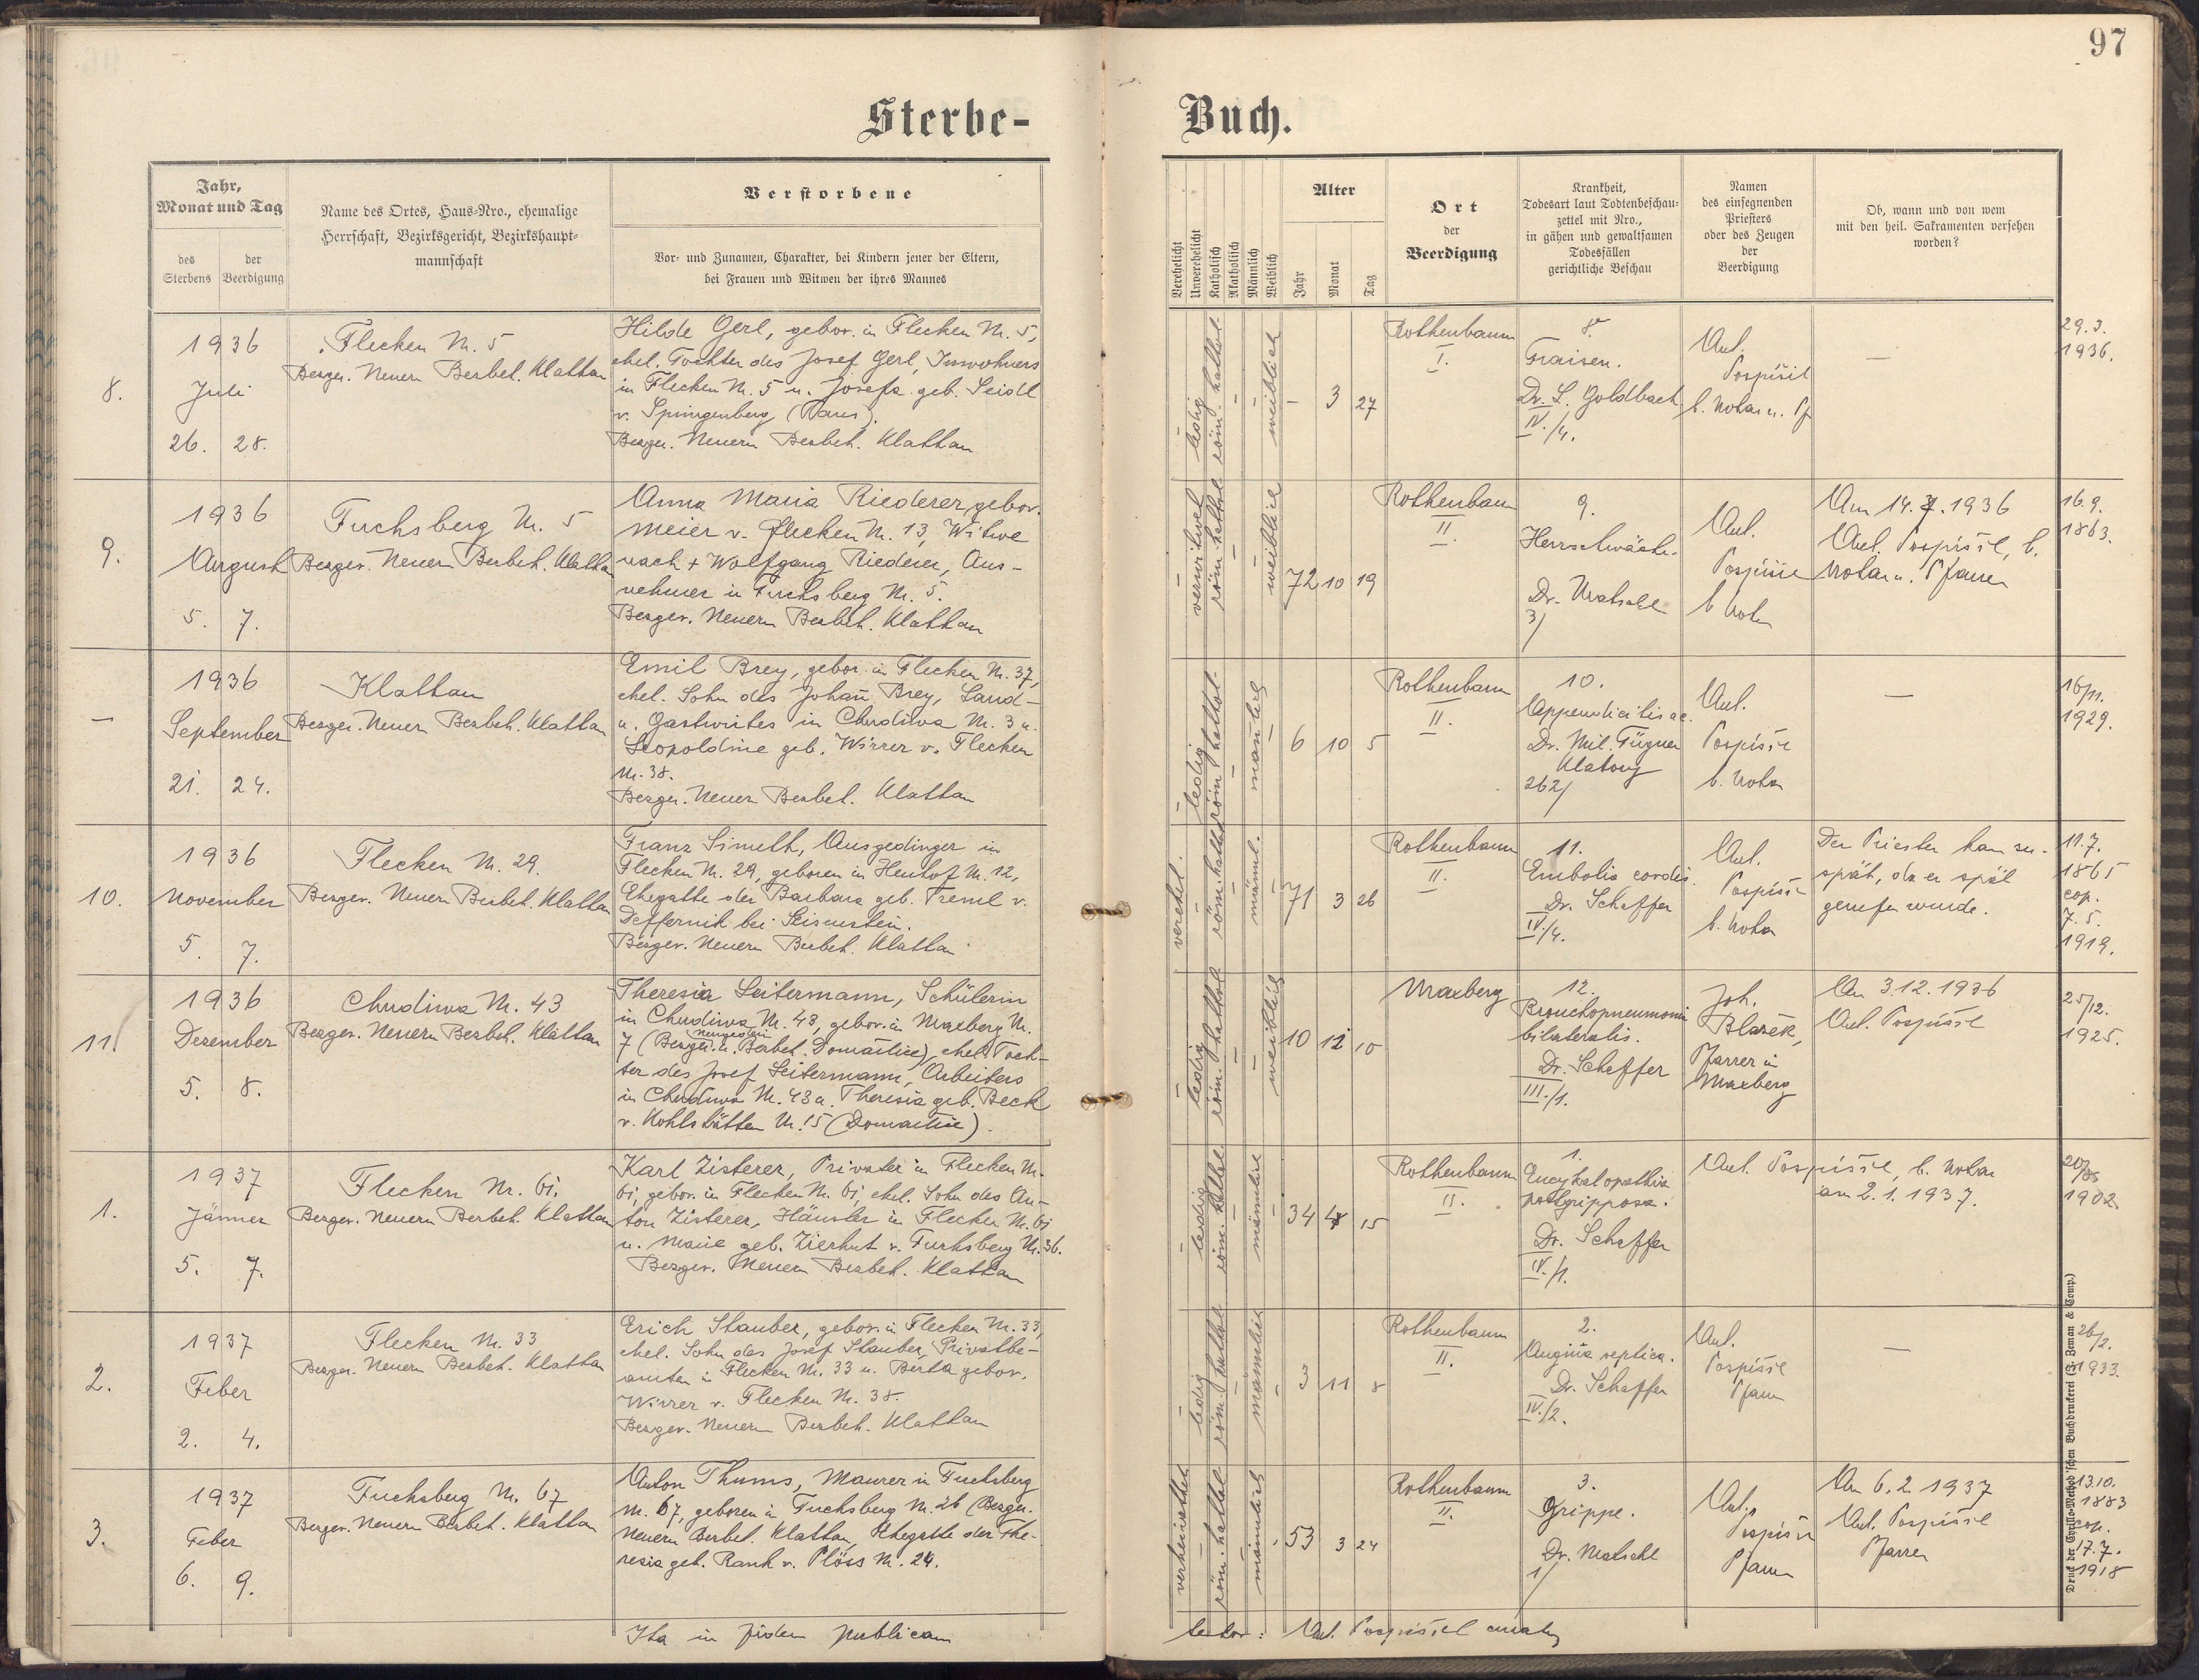 97
Sterbe-
Buch.
Jahr,
Monat und Tag
des
Sterbens
der
Beerdigung
Name des Ortes, Haus-Nro., ehemalige
Herrschaft, Bezirksgericht, Bezirkshaupt-
mannschaft
Verstorbene
Vor- und Zunamen, Charakter, bei Kindern jener der Eltern,
bei Frauen und Witwen der ihres Mannes
Verehelicht
Unverehelicht
Katholisch
Akatholisch
Männlich
Weiblich
Alter
Jahr
Monat
Tag
Ort
der
Beerdigung
Krankheit,
Todesart laut Todtenbeschau-
zettel mit Nro.,
in gähen und gewaltsamen
Todesfällen
gerichtliche Beschau
Namen
des einsegnenden
Priesters
oder des Zeugen
der
Beerdigung
Ob, wann und von wem
mit den heil. Sakramenten versehen
worden?
8.
1936
Juli
26. 28.
Flecken N. 5
Bezger. Neuern Bezbeh. Klattau
Hilde Gerl, gebor. in Flecken N. 5,
ehel. Tochter des Josef Gerl, Inwohners
in Flecken N. 5 u. Josefa geb. Seidl
v. Springenberg (Taus).
Bezger. Neuern Bezbeh. Klattau
ledig
röm. kathol.
weiblich
– 3 27
Rothenbaum
I.
8.
Fraisen.
Dr. L. Goldbach
IV./4.
Ant.
Pospíšil
b. Notar u. Pf
—
29.3.
1936.
9.
1936
August
5. 7.
Fuchsberg N. 5
Bezger. Neuern Bezbeh. Klattau
Anna Maria Riederer, gebor.
Meier v. Flecken N. 13, Witwe
nach + Wolfgang Riederer, Aus-
nehmer in Fuchsberg N. 5.
Bezger. Neuern Bezbeh. Klattau
verwitwet
röm. kathol.
weiblich
72 10 19
Rothenbaum
II.
9.
Herzschwäche.
Dr. Matschl
3/
Ant.
Pospíšil
b. Notar
Am 14.7.1936
Ant. Pospíšil, b.
Notar u. Pfarrer
16.9.
1863.
–
1936
September
21. 24.
Klattau
Bezger. Neuern Bezbeh. Klattau
Emil Brey, gebor. in Flecken N. 37,
ehel. Sohn des Johan̄ Brey, Land-
u. Gastwirtes in Chudiwa N. 3 u.
Leopoldine geb. Wirrer v. Flecken
N. 38.
Bezger. Neuern Bezbeh. Klattau
ledig
röm. kathol.
män̄lich
6 10 5
Rothenbaum
II.
10.
Appendicitis ac.
Dr. Mil. Fügner
Klatovy
262/
Ant.
Pospíšil
b. Notar
—
16/11.
1929.
10.
1936
November
5. 7.
Flecken N. 29.
Bezger. Neuern Bezbeh. Klattau
Franz Simeth, Ausgedinger in
Flecken N. 29, geboren in Heuhof N. 12,
Ehegatte der Barbara geb. Treml v.
Deffernik bei Eisenstein.
Bezger. Neuern Bezbeh. Klattau
verehel.
röm. kathol.
männl.
71 3 26
Rothenbaum
II.
11.
Embolia cordis.
Dr. Scheffer
IV./4.
Ant.
Pospíšil
b. Notar
Der Priester kam zu-
spät, da er spät
gerufen wurde.
11.7.
1865
cop.
7.5.
1919.
11.
1936
Dezember
5. 8.
Chudiwa N. 43
Bezger. Neuern Bezbeh. Klattau
Theresia Leitermann, Schülerin
in Chudiwa N. 43, gebor. in Maxberg N.
7 (Bezger. Neugedein u. Bezbeh. Domažlice), ehel. Toch-
ter des Josef Leitermann, Arbeiters
in Chudiwa N. 43 u. Theresia geb. Beck
v. Kohlstätten N. 15 (Domažlice).
ledig
röm. kathol.
weiblich
10 11 10
Maxberg
12.
Bronchopneumonia
bilateralis.
Dr. Scheffer
III./1.
Joh.
Blažek,
Pfarrer in
Maxberg
Am 3.12.1936
Ant. Pospíšil
25/12.
1925.
1.
1937
Jänner
5. 7.
Flecken Nr. 61.
Bezger. Neuern Bezbeh. Klattau
Karl Zisterer, Privater in Flecken N.
61, gebor. in Flecken N. 61, ehel. Sohn des An-
ton Zisterer, Häusler in Flecken N. 61
u. Marie geb. Zierhut v. Fuchsberg N. 36.
Bezger. Neuern Bezbeh. Klattau
ledig
röm. kathol.
männlich
34 4 15
Rothenbaum
II.
1.
Encephalopathia
postgripposa.
Dr. Scheffer
IV./1.
Ant. Pospíšil, b. Notar
am 2.1.1937.
1902.
2.
1937
Feber
2. 4.
Flecken N. 33
Bezger. Neuern Bezbeh. Klattau
Erich Stauber, gebor. in Flecken N. 33,
ehel. Sohn des Josef Stauber, Privatbe-
amten in Flecken N. 33 u. Berta gebor.
Wirrer v. Flecken N. 38.
Bezger. Neuern Bezbeh. Klattau
ledig
röm. kathol.
männlich
3 11 8
Rothenbaum
II.
2.
Angina septica.
Dr. Scheffer
IV./2.
Ant.
Pospíšil
Pfarrer
—
26/2.
1933.
3.
1937
Feber
6. 9.
Fuchsberg N. 67
Bezger. Neuern Bezbeh. Klattau
Anton Thums, Maurer in Fuchsberg
N. 67, geboren in Fuchsberg N. 26 (Bezger.
Neuern Bezbeh. Klattau, Ehegatte der The-
resia geb. Rank v. Plöss N. 24.
verheirathet
röm. kathol.
männlich
53 3 24
Rothenbaum
II.
3.
Grippe.
Dr. Matschl
1/
Ant.
Pospíšil
Pfarrer
Am 6.2.1937
Ant. Pospíšil
Pfarrer
13.10.
1883
cop.
17.7.
1918
Ita in fidem publicam
testor: Ant. Pospíšil
Druck der Cyrillo-Method'schen Buchdruckerei (J. Zeman & Comp.)